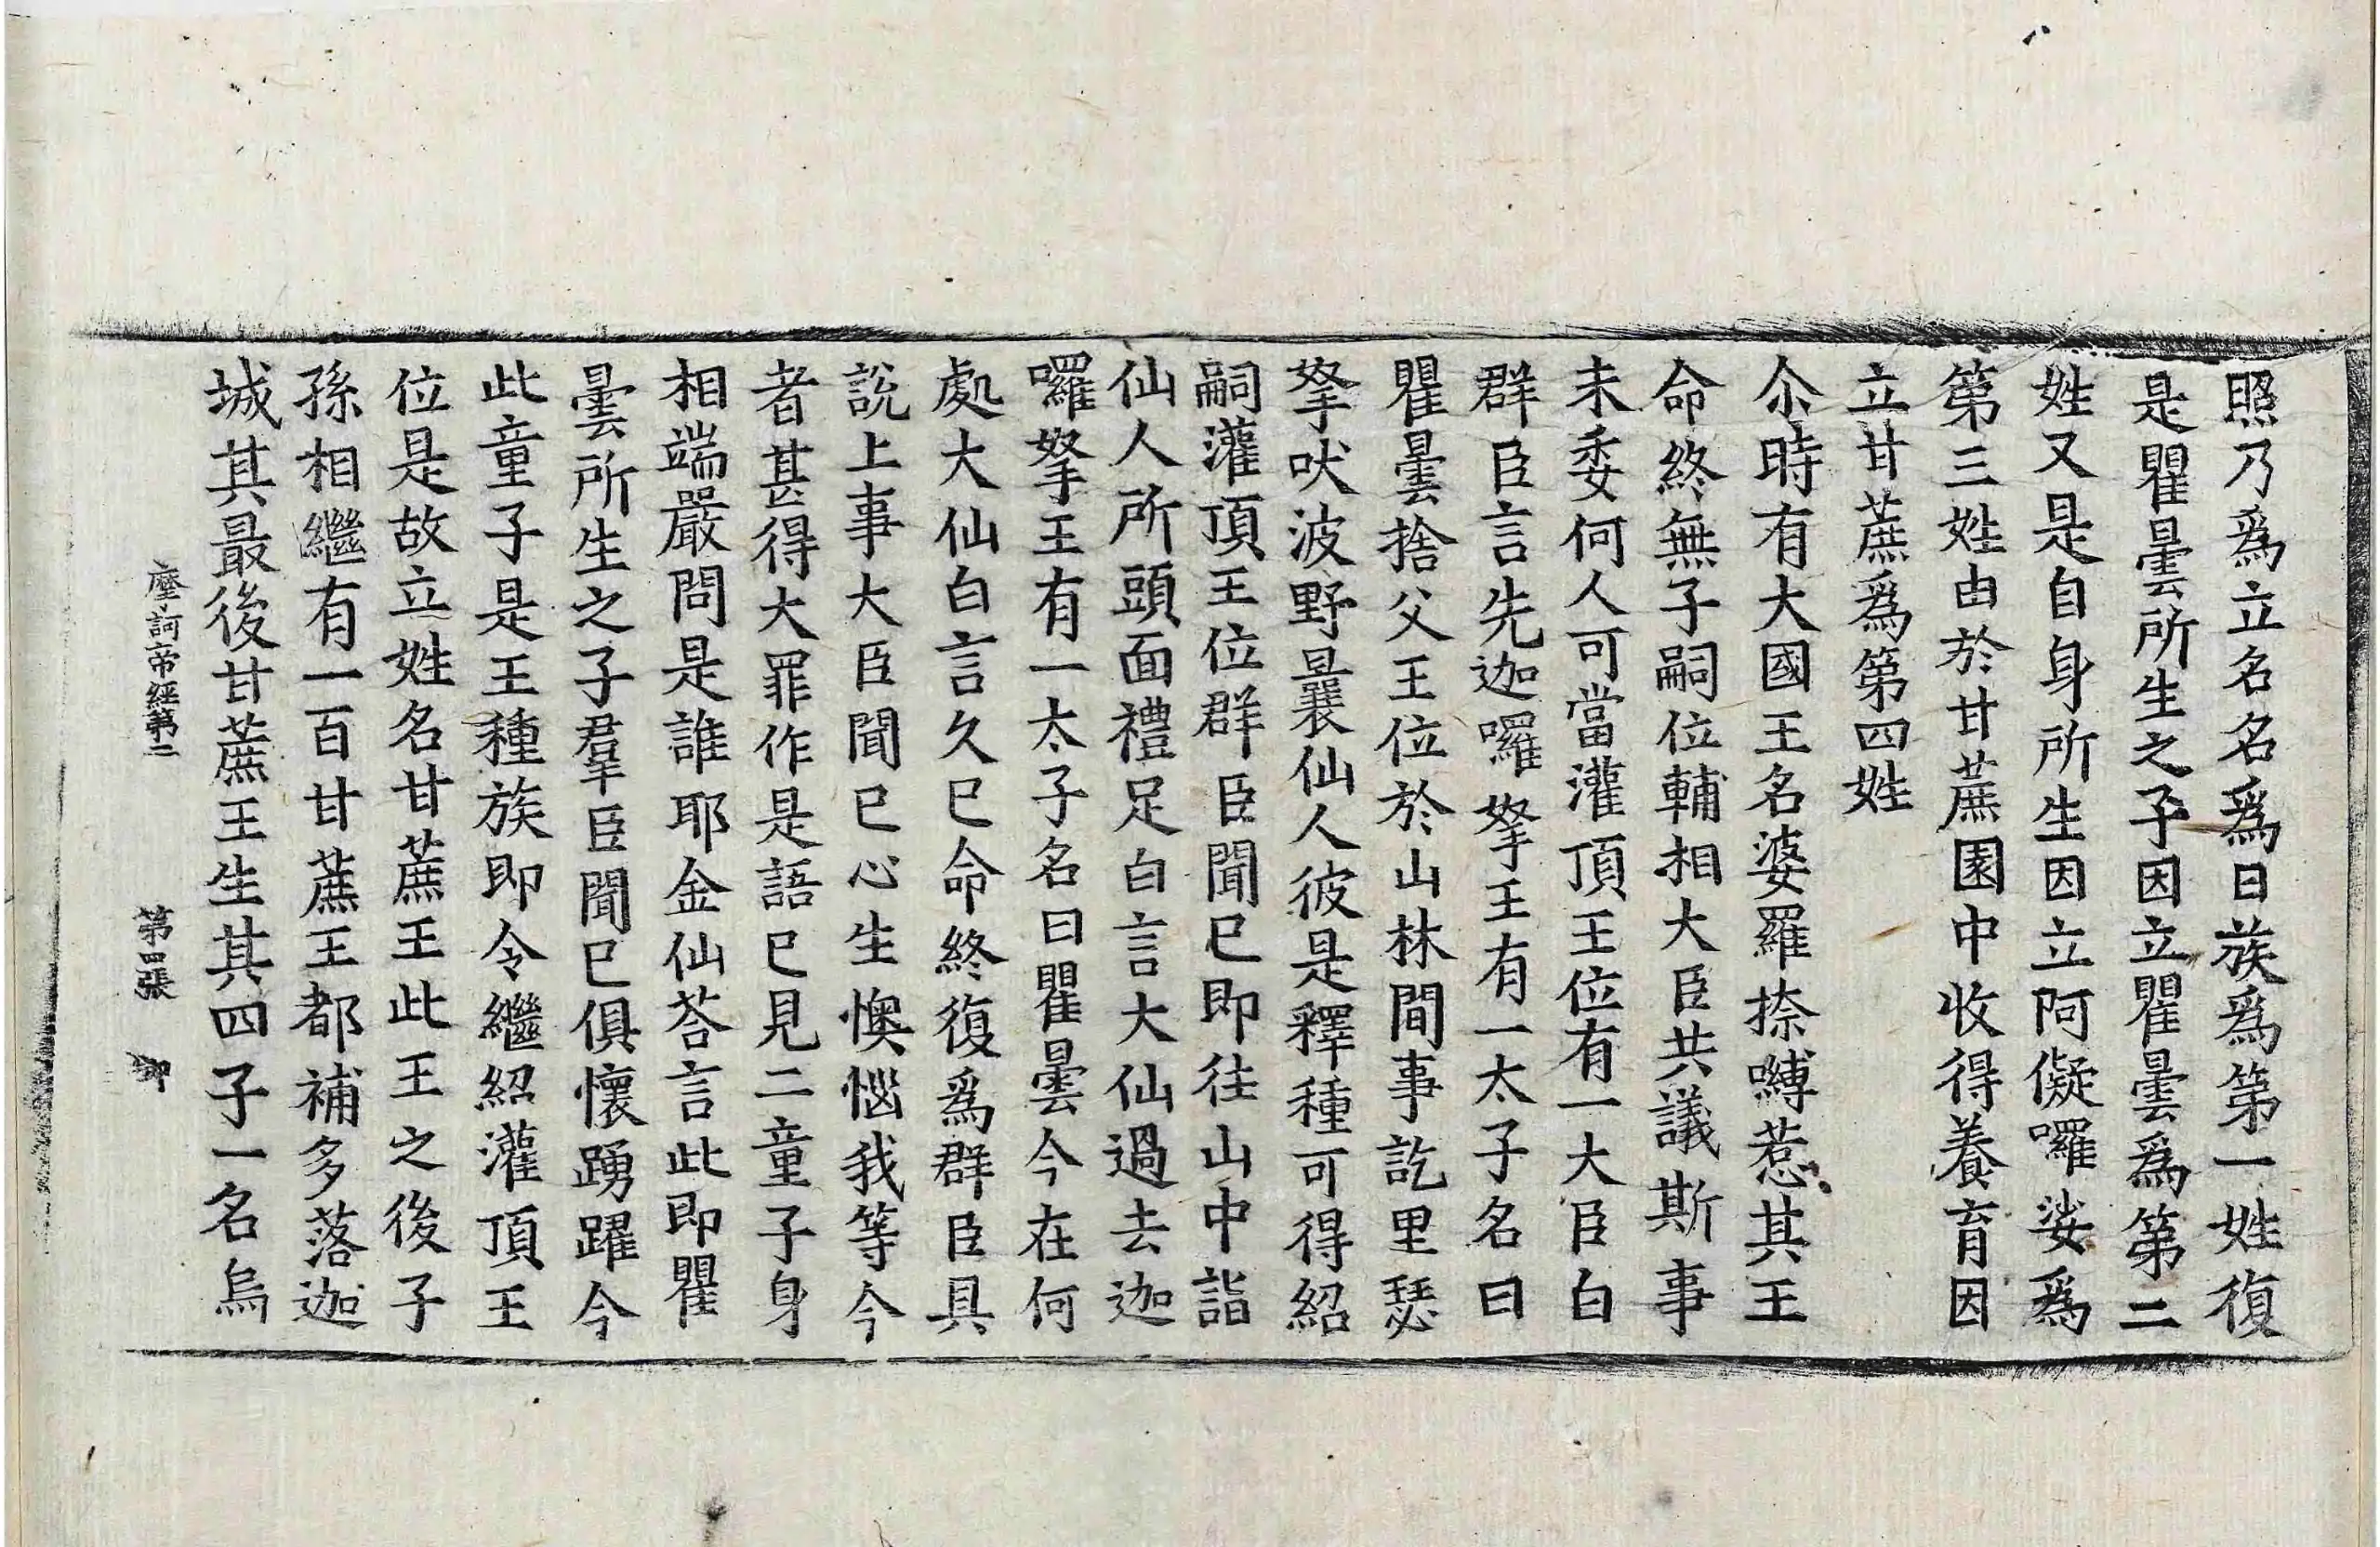 照乃爲立名名爲日族爲第一姓復
是瞿曇所生之子因立瞿曇爲第二
姓又是自身所生因立阿儗囉娑爲
第三姓由於甘蔗園中收得養育因
立甘蔗爲第四姓
尒時有大國王名婆羅捺嚩惹其王
命終無子嗣位輔相大臣共議斯事
未委何人可當灌頂王位有一大臣白
群臣言先迦囉拏王有一太子名曰
瞿曇捨父王位於山林間事訖里瑟
拏吠波野曩仙人彼是釋種可得紹
嗣灌頂王位群臣聞已即往山中詣
仙人所頭面禮足白言大仙過去迦
囉拏王有一太子名曰瞿曇今在何
處大仙白言久已命終復爲群臣具
說上事大臣聞已心生懊惱我等今
者甚得大罪作是語已見二童子身
相端嚴問是誰耶金仙荅言此即瞿
曇所生之子羣臣聞已俱懷踴躍今
此童子是王種族即令繼紹灌頂王
位是故立姓名甘蔗王此王之後子
孫相繼有一百甘蔗王都補多落迦
城其最後甘蔗王生其四子一名烏
摩訶帝經第二 第四張